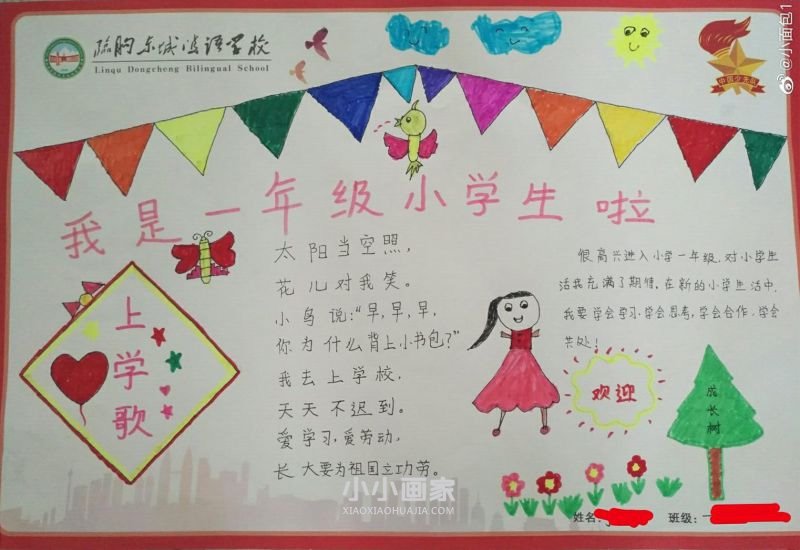 临朐东城双语学校
Linqu Dongcheng Bilingual School
@小面包1
中国少先队
我是一年级小学生啦
上学歌
太阳当空照,
花儿对我笑。
小鸟说:“早,早,早,
你为什么背上小书包?”
我去上学校,
天天不迟到。
爱学习,爱劳动,
长大要为祖国立功劳。
很高兴进入小学一年级,对小学生
活我充满了期待,在新的小学生活中,
我要学会学习,学会思考,学会合作,学会
共处!
欢迎
成长树
小小画家
XIAOXIAOHUAJIA.COM
姓名:
班级:一